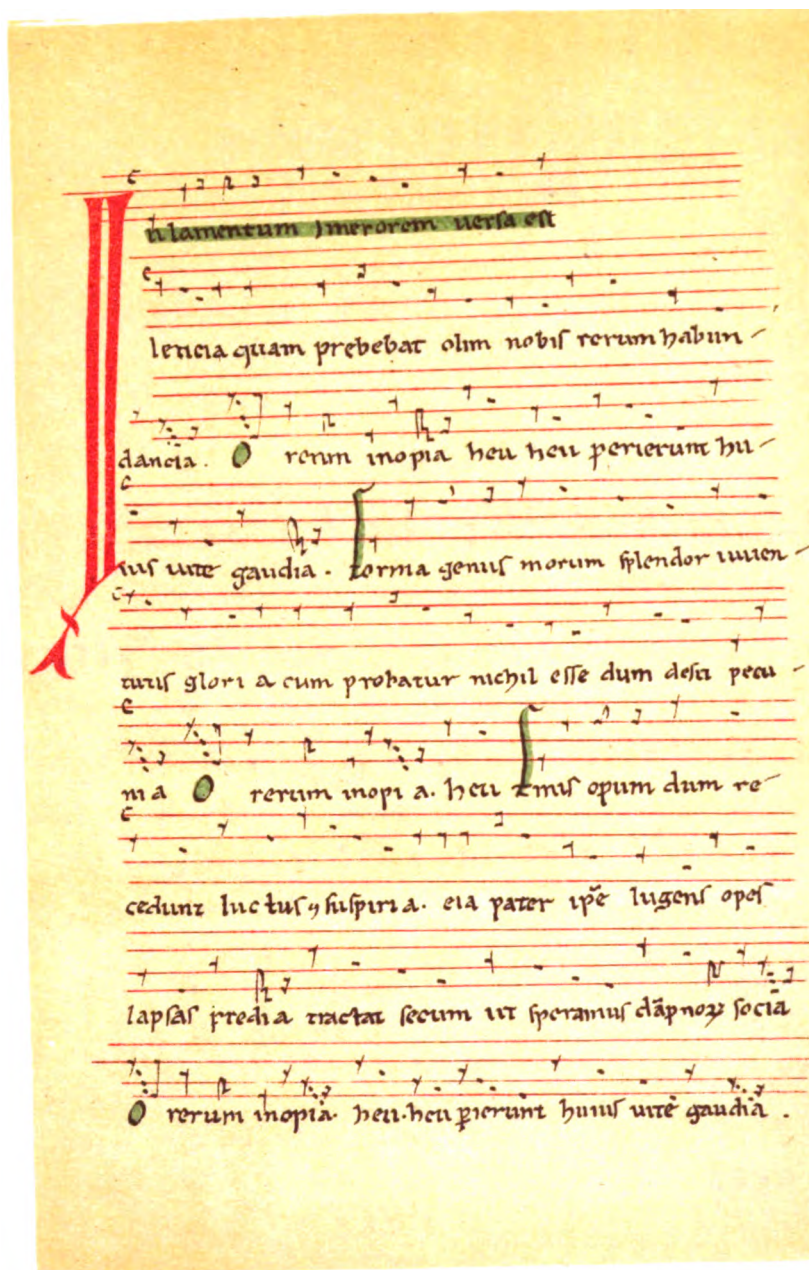 In lamentum Imerorem uersa est
leticia quam prebebat olim nobis rerum habun-
dancia. O rerum inopia heu heu perierunt hu-
ius uite gaudia. Forma genus morum splendor iuuen-
tutis glori a cum probatur nichil esse dum desit pecu-
nia O rerum inopi a. heu Finis opum dum re-
cedunt luctus ⁊ suspiri a. eia pater ip̄e lugens opes
lapsas predi a tractat secum ut speramus dāpnoꝝ socia
O rerum inopia. heu. heu ꝑierunt huius uite gaudia.